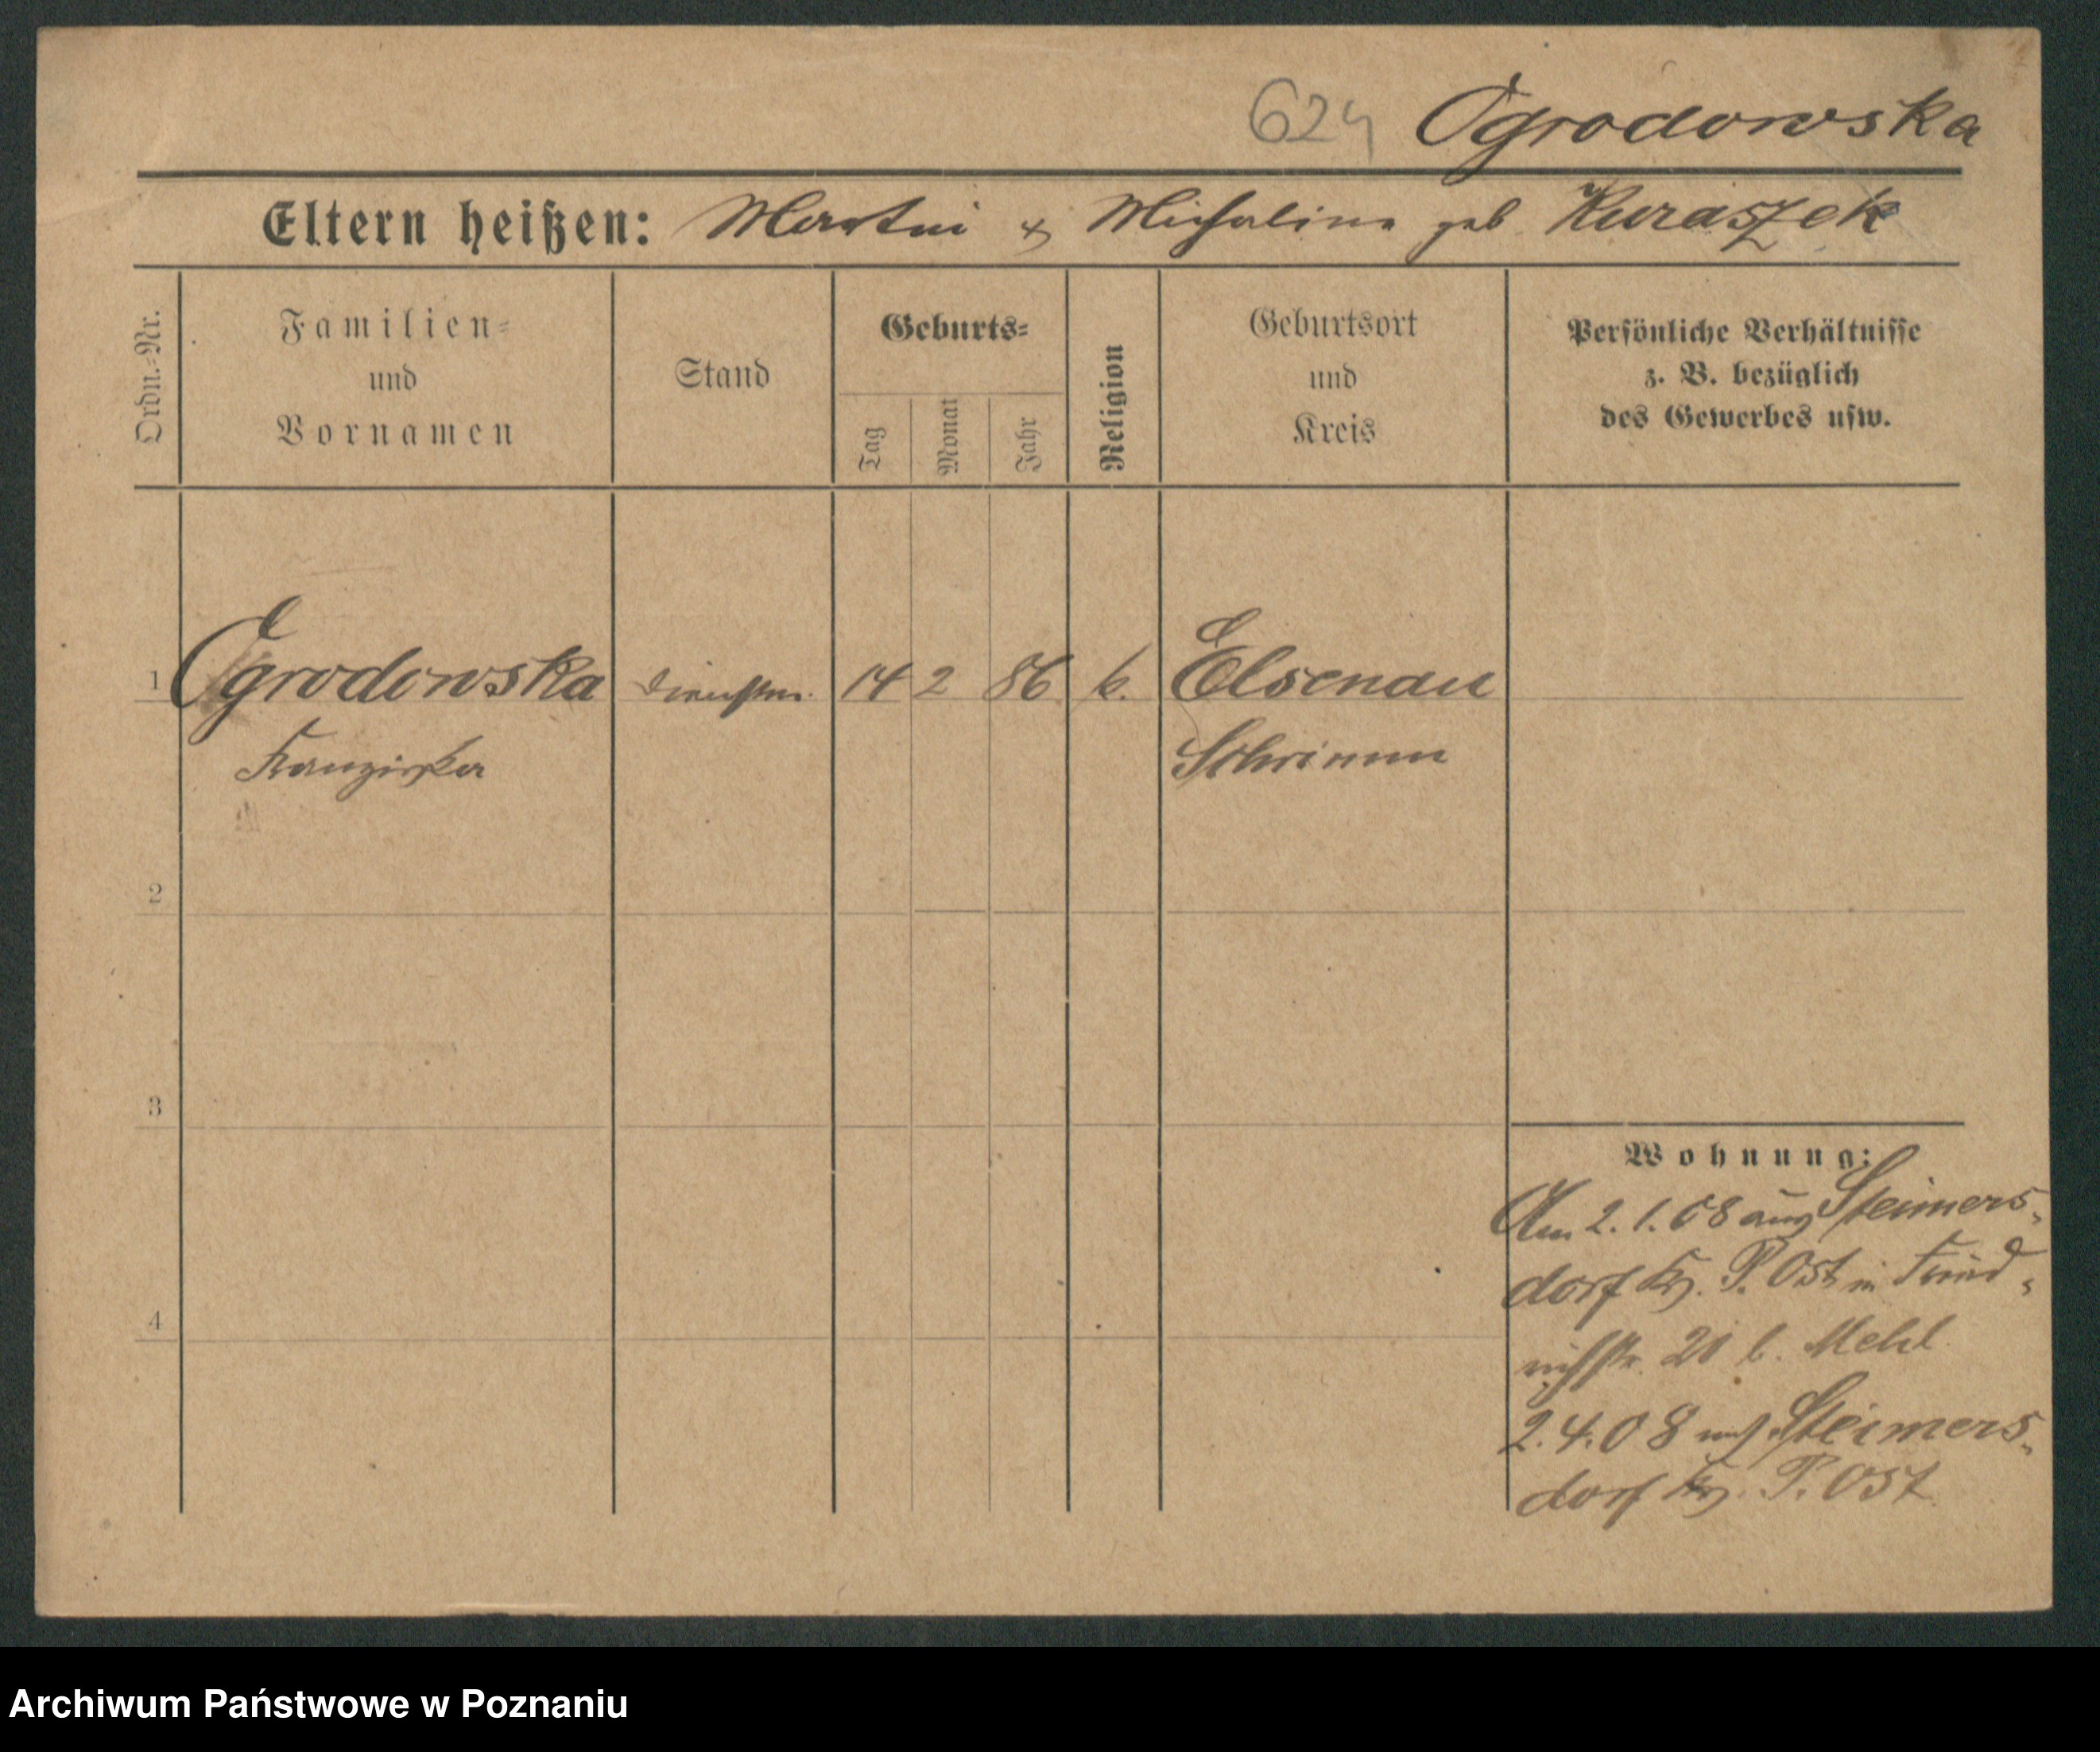 624 Ogrodowska
Eltern heißen: Martin & Michalina geb. Kuraszek
Ordn.-Nr.
Familien-
und
Vornamen
Stand
Geburts-
Tag
Monat
Jahr
Religion
Geburtsort
und
Kreis
Persönliche Verhältnisse
z. B. bezüglich
des Gewerbes usw.
1 Ogrodowska Dienstm. 14 2 86 k. Elsenau
Franziska Schrimm
2
3
4
Wohnung:
Am 2.1.08 aus Steimers-
dorf Kr. P. Ost in Fried-
richstr. 20 b. Mehl
2.4.08 nach Steimers-
dorf Kr. P. Ost
Archiwum Państwowe w Poznaniu